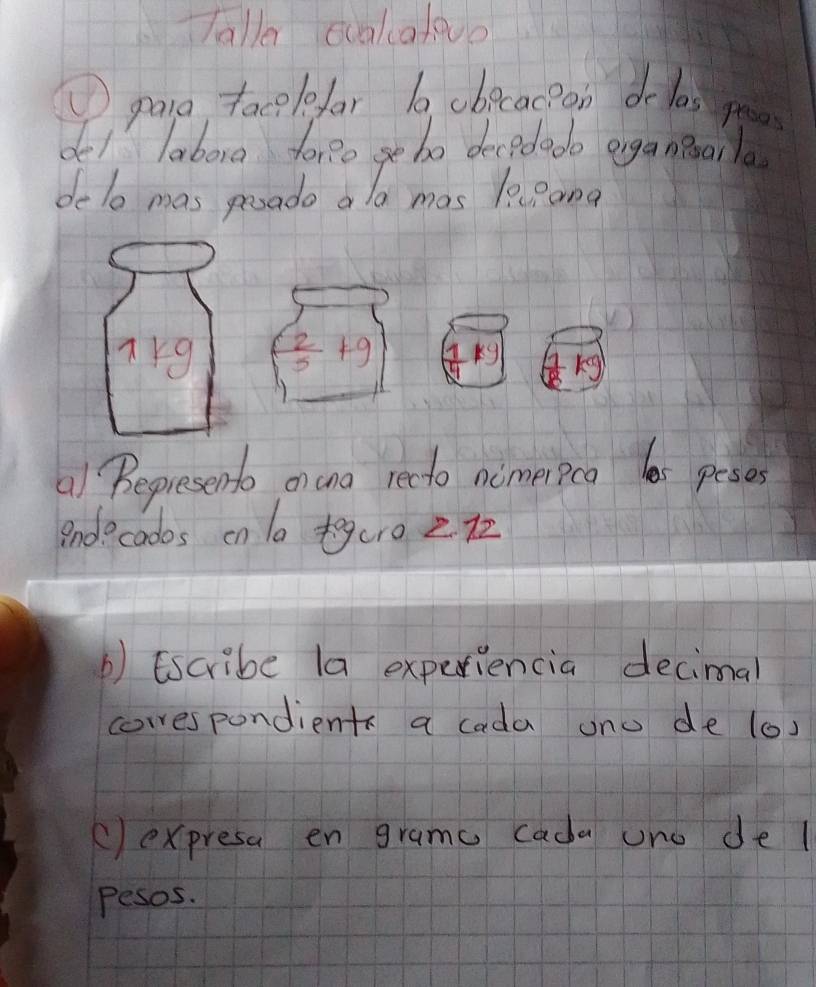 Taller evaluativo
1) para facilitar la ubicacion de las pesas
del laboratorio se ha decidido organizarlas
de la mas pesado a la mas liviana
1 kg 2/5 kg 1/4 kg 1/8 kg
a) Represento en una recta númerica los pesos
indicados en la figura 2.12
b) Escribe la experiencia decimal
correspondiente a cada uno de los
c) expresa en gramo cada uno de l
pesos.